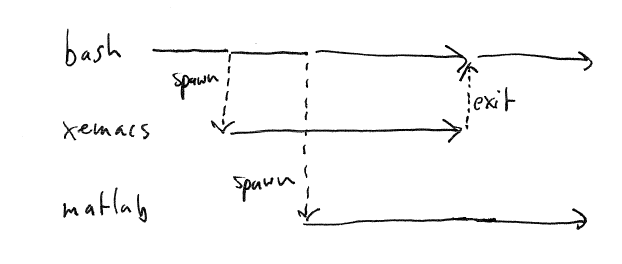 bash
spawn
exit
xemacs
spawn
matlab